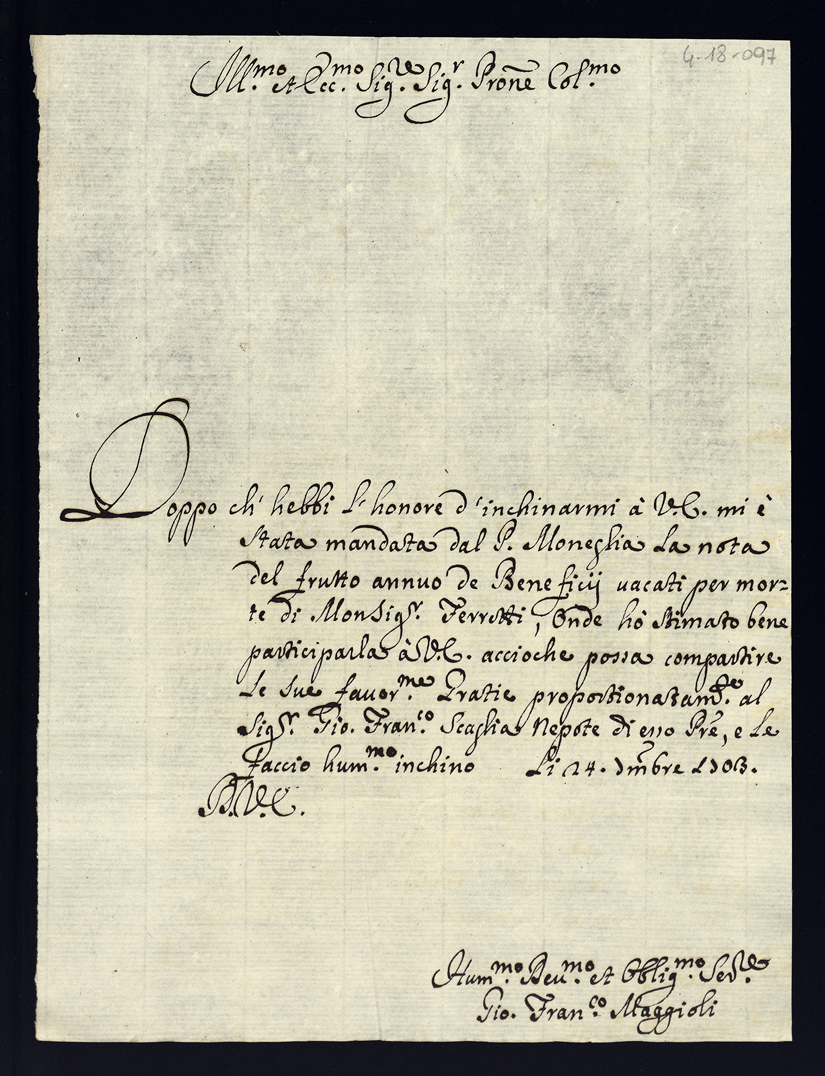 4-18-097
Ill.mo et Ecc.mo Sig.re Sig.r Prone Col.mo
Doppo ch' hebbi l'honore d'inchinarmi à V.E. mi è
stata mandata dal P. Moneglia la nota
del frutto annuo de Beneficij uacati per mor=
te di Monsig.r Ferretti, Onde hò stimato bene
participarla à V.E. accioche possa compartire
le sue fauor.me Gratie proportionatam.te al
Sig.r Gio. Fran.co Scaglia Nepote di esso Pre, e le
faccio hum.mo inchino li 24. Xmbre 1703.
B. V. E.
Hum.mo Deu.mo et Oblig.mo Ser.re
Gio. Fran.co Maggioli